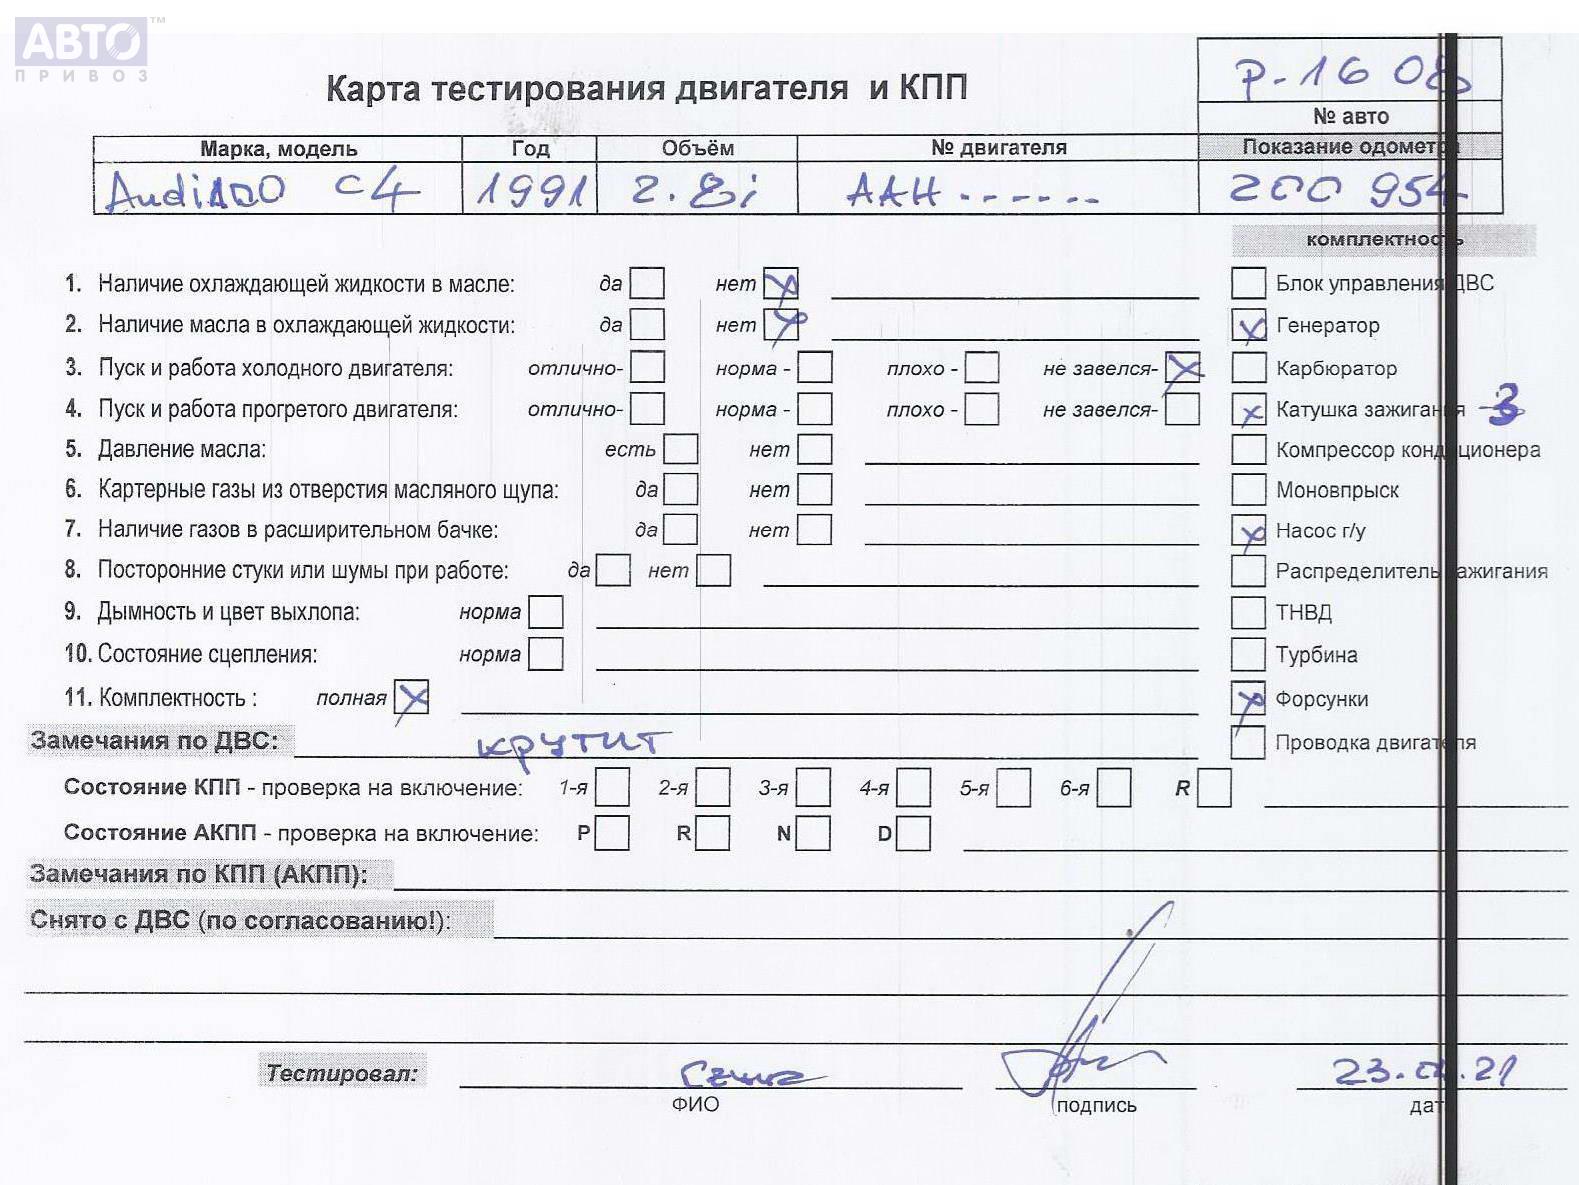 АВТО™
ПРИВОЗ
Карта тестирования двигателя и КПП
р-1608
№ авто
Марка, модель Год Объём № двигателя Показание одометра
Audi 100 C4 1991 2.8i AAH------ 200 954
комплектность
1. Наличие охлаждающей жидкости в масле: да нет x Блок управления ДВС
2. Наличие масла в охлаждающей жидкости: да нет x x Генератор
3. Пуск и работа холодного двигателя: отлично- норма - плохо - не завелся- x Карбюратор
4. Пуск и работа прогретого двигателя: отлично- норма - плохо - не завелся- x Катушка зажигания - 3
5. Давление масла: есть нет Компрессор кондиционера
6. Картерные газы из отверстия масляного щупа: да нет Моновпрыск
7. Наличие газов в расширительном бачке: да нет x Насос г/у
8. Посторонние стуки или шумы при работе: да нет Распределитель зажигания
9. Дымность и цвет выхлопа: норма ТНВД
10. Состояние сцепления: норма Турбина
11. Комплектность : полная x x Форсунки
Замечания по ДВС: крутит Проводка двигателя
Состояние КПП - проверка на включение: 1-я 2-я 3-я 4-я 5-я 6-я R
Состояние АКПП - проверка на включение: P R N D
Замечания по КПП (АКПП):
Снято с ДВС (по согласованию!):
Тестировал: 23. .21
ФИО подпись дата